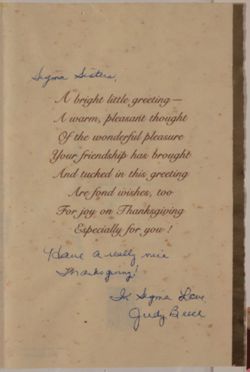 Sigma Sisters,
A bright little greeting—
A warm, pleasant thought
Of the wonderful pleasure
Your friendship has brought
And tucked in this greeting
Are fond wishes, too
For joy on Thanksgiving
Especially for you !
Have a really nice
Thanksgiving!
In Sigma Love
Judy